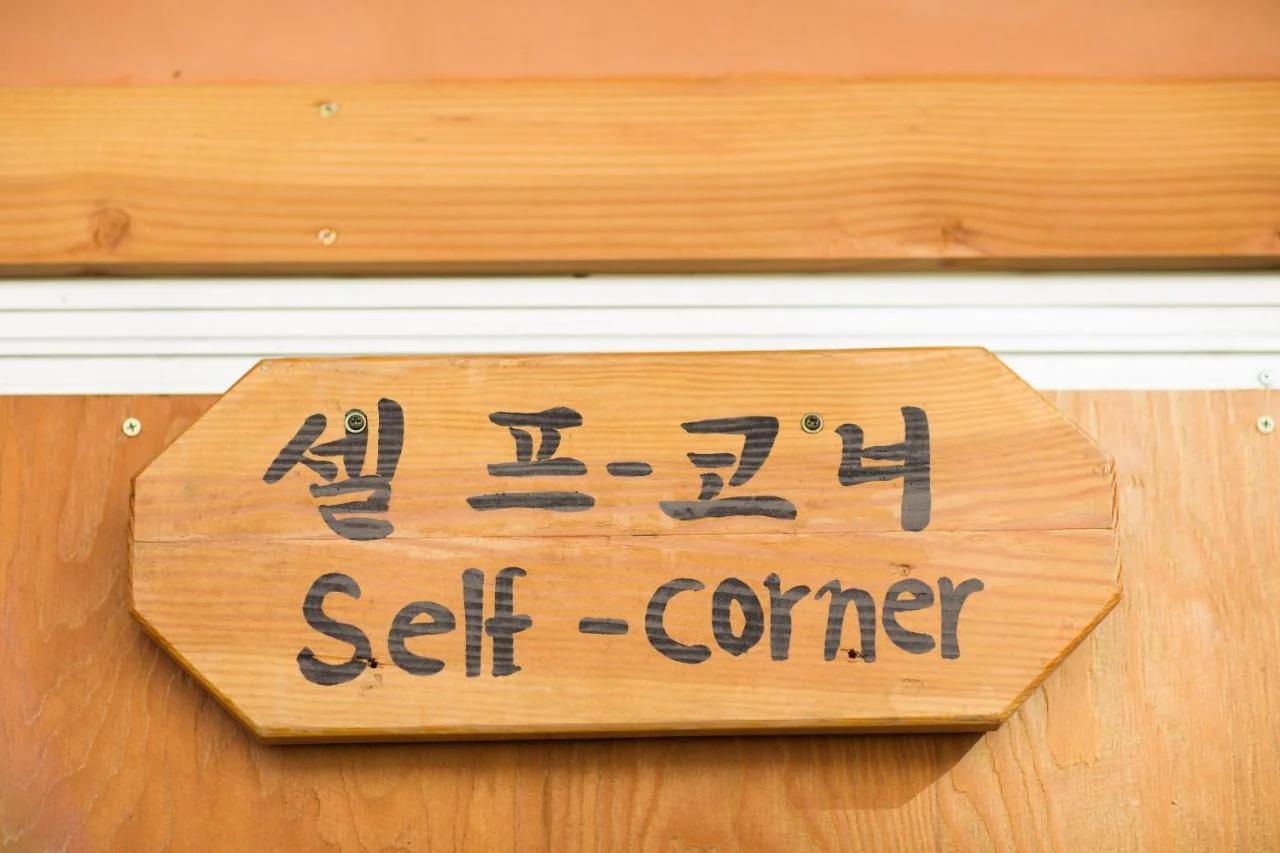 셀프-코너
Self-corner